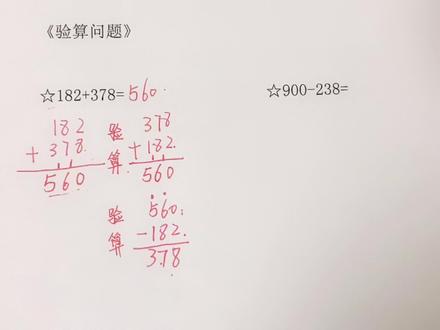 《验算问题》
☆182+378=560
☆900-238=
182
+378
560
验算
378
+182
560
验算
560
-182
378